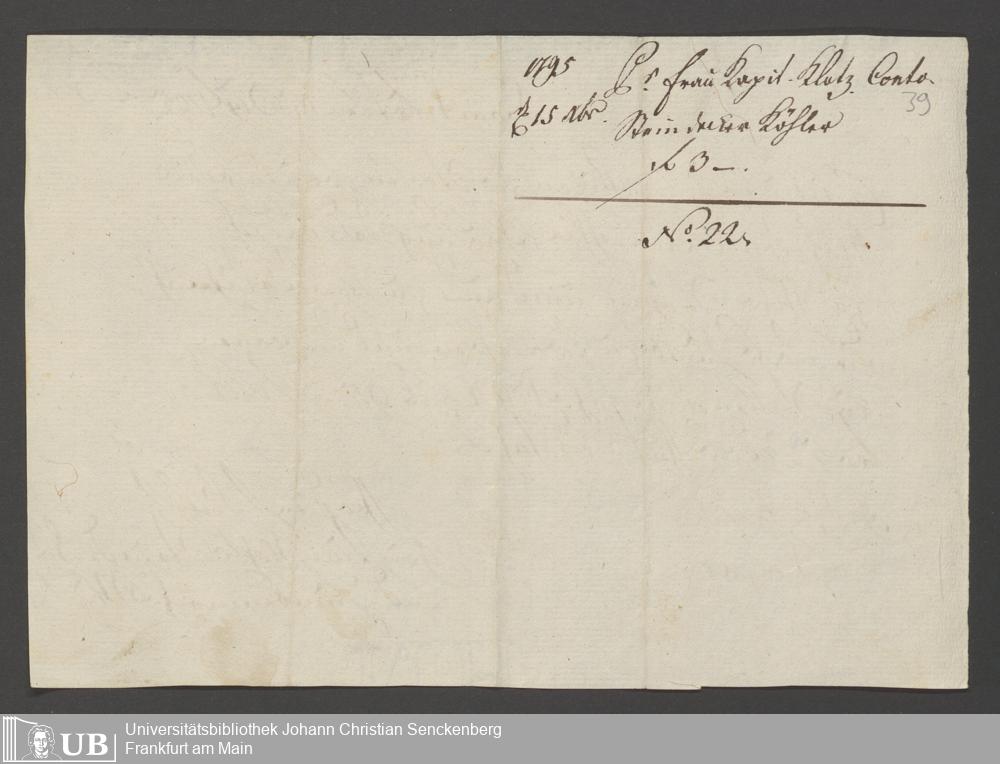 1795 Pr. Frau Kapit. Klotz Conto.
39
15 Xbr. Steindecker Köhler
f 3 —.
No. 22.
UB Universitätsbibliothek Johann Christian Senckenberg
Frankfurt am Main